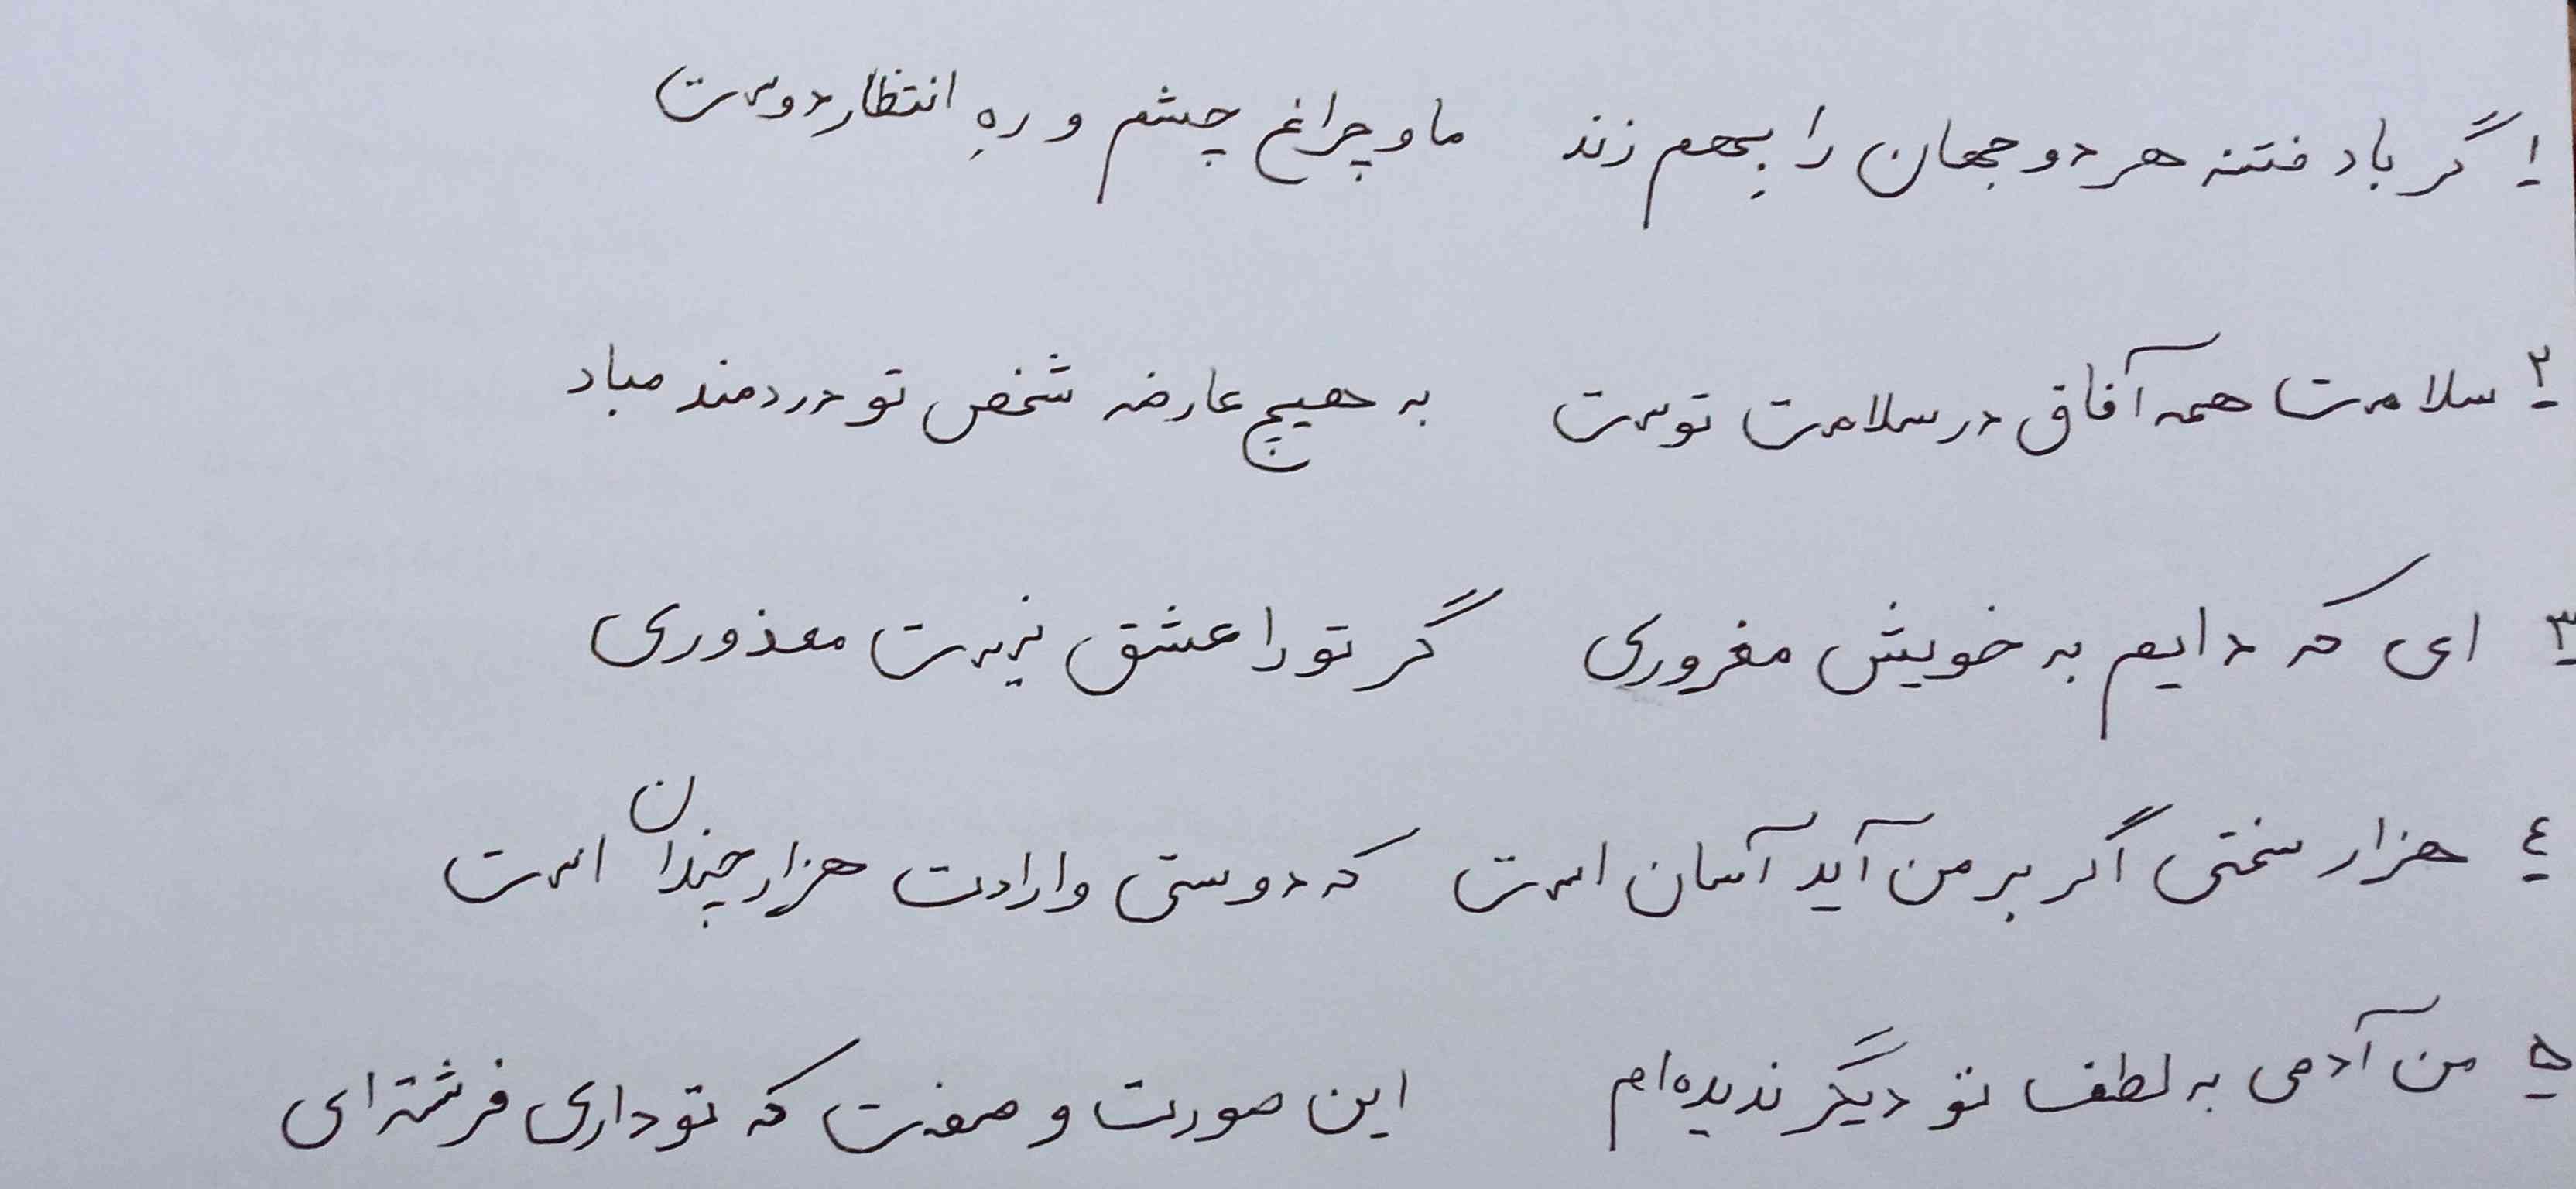 ۱ گر باد فتنه هر دو جهان را بهم زند ما و چراغ چشم و رهِ انتظار دوست
۲ سلامت همه آفاق در سلامت توست به هیچ عارضه شخص تو دردمند مباد
۳ ای که دایم به خویش مغروری گر تو را عشق نیست معذوری
٤ هزار سختی اگر بر من آید آسان است که دوستی و ارادت هزار چندان است
۵ من آدمی به لطف تو دیگر ندیده‌ام این صورت و صفت که تو داری فرشته‌ای